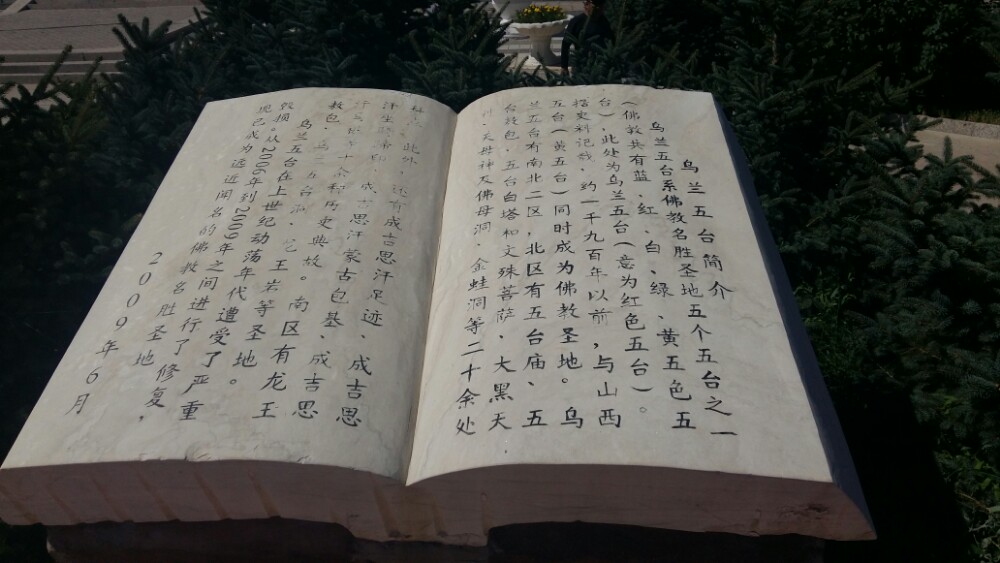 乌兰五台简介
乌兰五台系佛教名胜圣地五个五台之一
(佛教共有蓝、红、白、绿、黄五色五
台)此处为乌兰五台(意为红色五台)。
据史料记载,约一千九百年以前,与山西
五台(黄五台)同时成为佛教圣地。乌
兰五台有南北二区,北区有五台庙、五
台敖包、五台白塔和文殊菩萨、大黑天
、天母神及佛母洞、金蛙洞等二十余处
此外 还有成吉思汗足迹、成吉思
汗坐骑蹄印、成吉思汗蒙古包基、成吉思
十余种历史典故。南区有龙王
敖包、五台洞、王岩等圣地。
乌兰五台在上世纪动荡年代遭受了严重
毁损。从2006年到2009年之间进行了修复,
现已成为远近闻名的佛教名胜圣地。
2009年6月